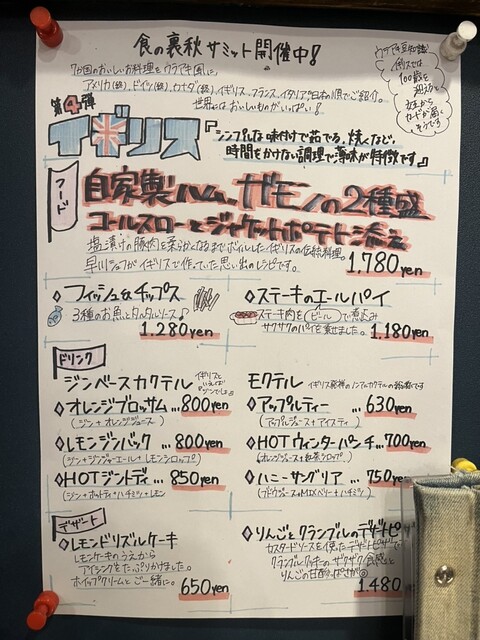 食の裏秋サミット開催中!
7か国のおいしいお料理をウラアキ風に
アメリカ(終)、ドイツ(終)、カナダ(終)、イギリス、フランス、イタリア、日本の順でご紹介。
世界にはおいしいものがいっぱい!
ウラアキ豆知識
イギリスでは
100歳を
迎えると
女王から
カードが届く
そうです
第4弾
イギリス
『シンプルな味付で茹でる、焼くなど、
時間をかけない調理で薄味が特徴です』
フード
自家製ハム、ガモンの2種盛
コールスローとジャケットポテト添え
塩漬けの豚肉を柔らかくなるまでボイルしたイギリスの伝統料理。
早川シェフがイギリスで作っていた思い出のレシピです。
1,780yen
◇フィッシュ&チップス
3種のお魚とタルタルソース♪
1,280yen
◇ステーキのエールパイ
ステーキ肉を(ビール)で煮込み
サクサクのパイを乗せました。
1,180yen
ドリンク
ジンベースカクテル
イギリスと
いえば
ジンでしょ
◇オレンジブロッサム…800yen
(ジン+オレンジジュース)
◇レモンジンバック…800yen
(ジン+ジンジャーエール+レモンシロップ)
◇HOTジントディ…850yen
(ジン+ホットティ+ハチミツ+レモン
モクテル
イギリス発祥のノンアルカクテルの総称です
◇アップルティー…630yen
(アップルジュース+アイスティ)
◇HOTウィンターパンチ…700yen
(オレンジジュース+紅茶シロップ)
◇ハニーサングリア…750yen
(ブドウジュース+MIXベリー+ハチミツ)
デザート
◇レモンドリズルケーキ
レモンケーキのうえから
アイシングをたっぷりかけました。
ホイップクリームとご一緒に。
650yen
◇りんごとクランブルのデザートピ
カスタードソースを使ったデザートピザで
クランブルクッキーのザクザク食感と
りんごの甘酸っぱさが◎
1.480